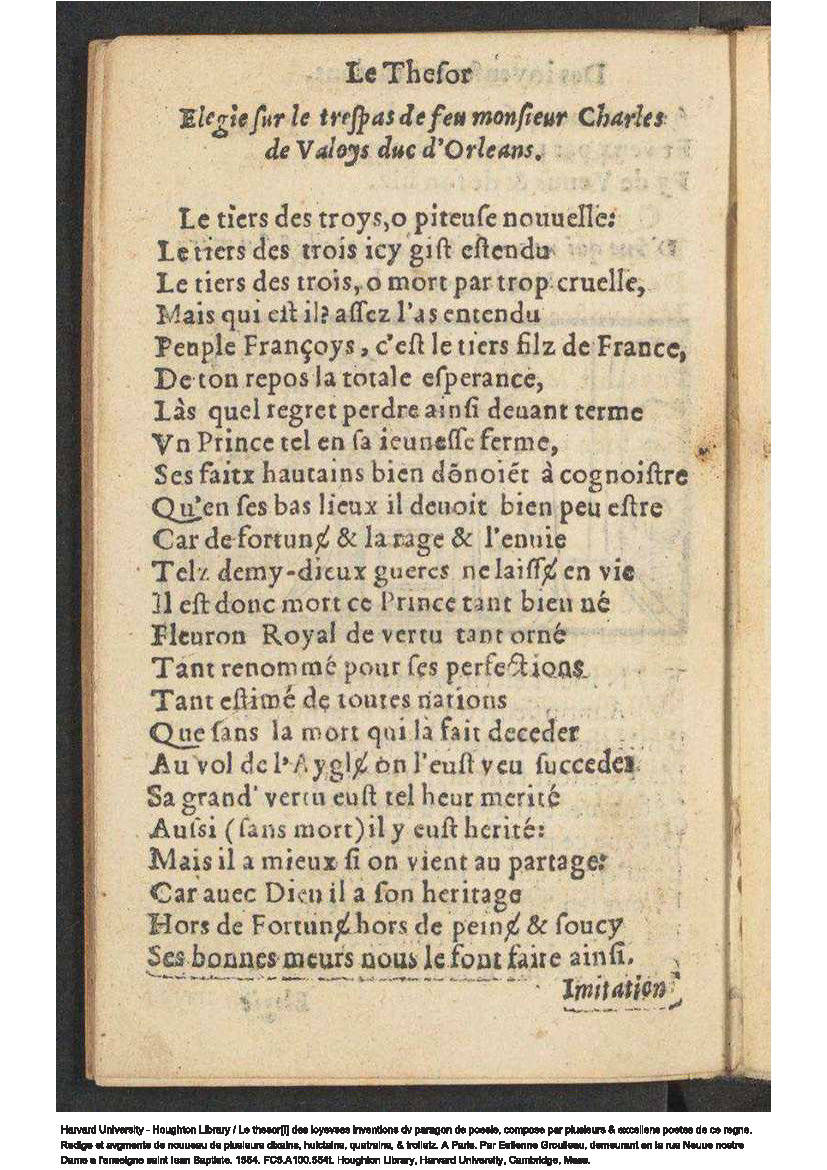 Le Theſor
Elegie ſur le treſpas de feu monſieur Charles
de Valoys duc d'Orleans.
Le tiers des troys, o piteuſe nouuelle:
Le tiers des trois icy giſt eſtendu
Le tiers des trois, o mort par trop cruelle,
Mais qui eſt il? aſſez l'as entendu
Peuple Françoys, c'eſt le tiers filz de France,
De ton repos la totale eſperance,
Làs quel regret perdre ainſi deuant terme
Vn Prince tel en ſa ieuneſſe ferme,
Ses faitx hautains bien dõnoiẽt à cognoiſtre
Qu'en ſes bas lieux il deuoit bien peu eſtre
Car de fortunɇ & la rage & l'enuie
Telz demy-dieux gueres ne laiſſɇ en vie
Il eſt donc mort ce Prince tant bien né
Fleuron Royal de vertu tant orné
Tant renommé pour ſes perfections
Tant eſtimé de toutes nations
Que ſans la mort qui là fait deceder
Au vol de l'Ayglɇ on l'euſt veu ſucceder
Sa grand' vertu euſt tel heur merité
Auſsi (ſans mort) il y euſt herité:
Mais il a mieux ſi on vient au partage:
Car auec Dieu il a ſon heritage
Hors de Fortunɇ hors de peinɇ & ſoucy
Ses bonnes meurs nous le font faire ainſi.
Imitation
Harvard University - Houghton Library / Le thesor[!] des ioyevses inventions dv paragon de poesie, compose par plusieurs & excellens poetes de ce regne.
Redige et avgmente de nouueau de plusieurs dixains, huictains, quatrains, & triolletz. A Paris. Par Estienne Groulleau, demeurant en la rue Neuue nostre
Dame a l'enseigne saint Iean Baptiste. 1554. FC5.A100.554t. Houghton Library, Harvard University, Cambridge, Mass.